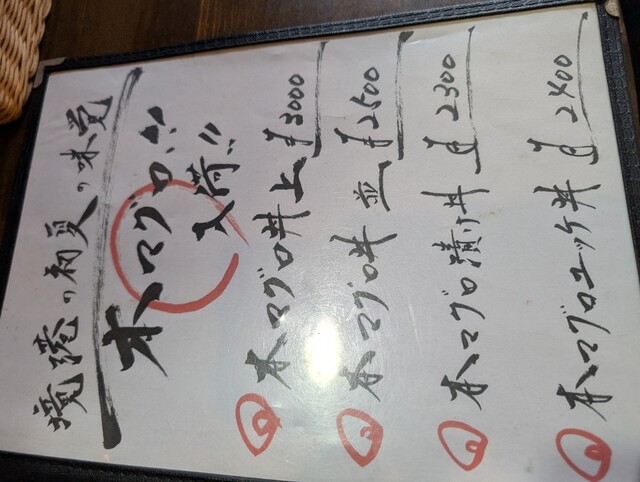 境港の初夏の味覚
本マグロ!!
入荷!!
本マグロ丼 上 ¥3000
本マグロ丼 並 ¥2500
本マグロ漬け丼 ¥2300
本マグロユッケ丼 ¥2400